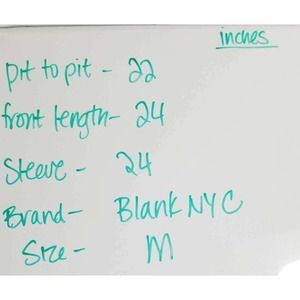 inches
pit to pit - 22
front length - 24
Sleeve - 24
Brand - Blank NYC
Size - M